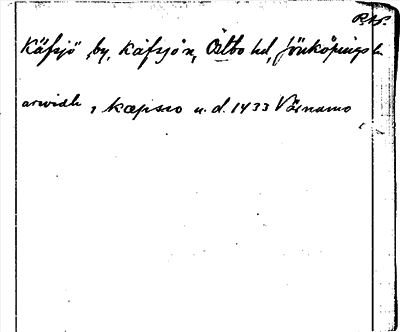 R.A.P.
Käfsjö, by, Käfsjön, Östbo hd, Jönköpings l.
arvidh i kæpsio u. d. 1433 Värnamo